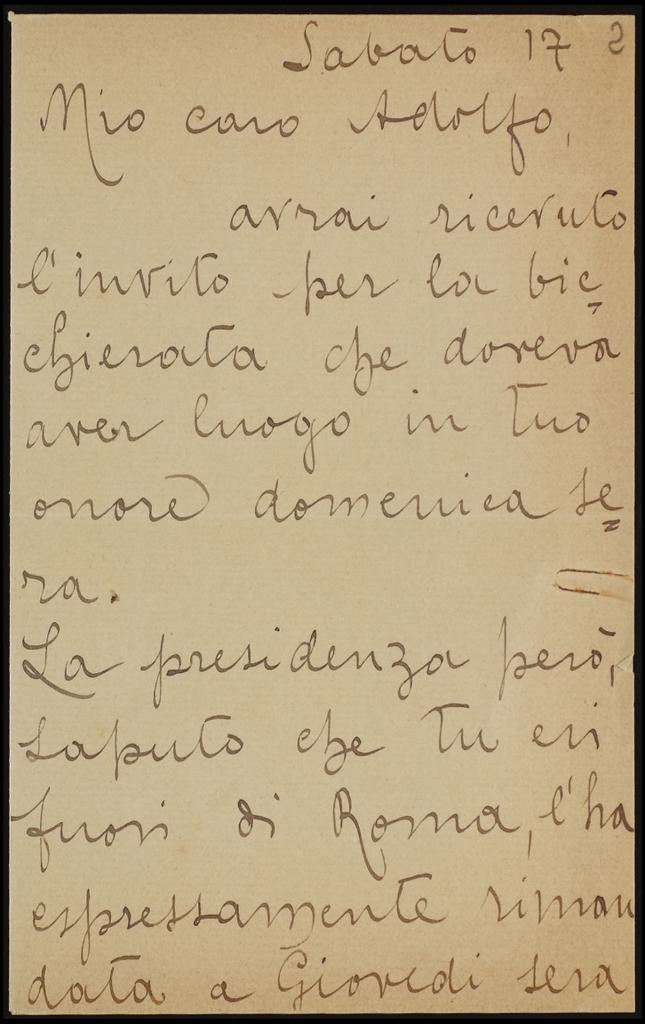 Sabato 17 2
Mio caro Adolfo,
avrai ricevuto
l'invito per la bic=
chierata che doveva
aver luogo in tuo
onore domenica se=
ra.
La presidenza però,
saputo che tu eri
fuori di Roma, l'ha
espressamente riman
data a Giovedi sera